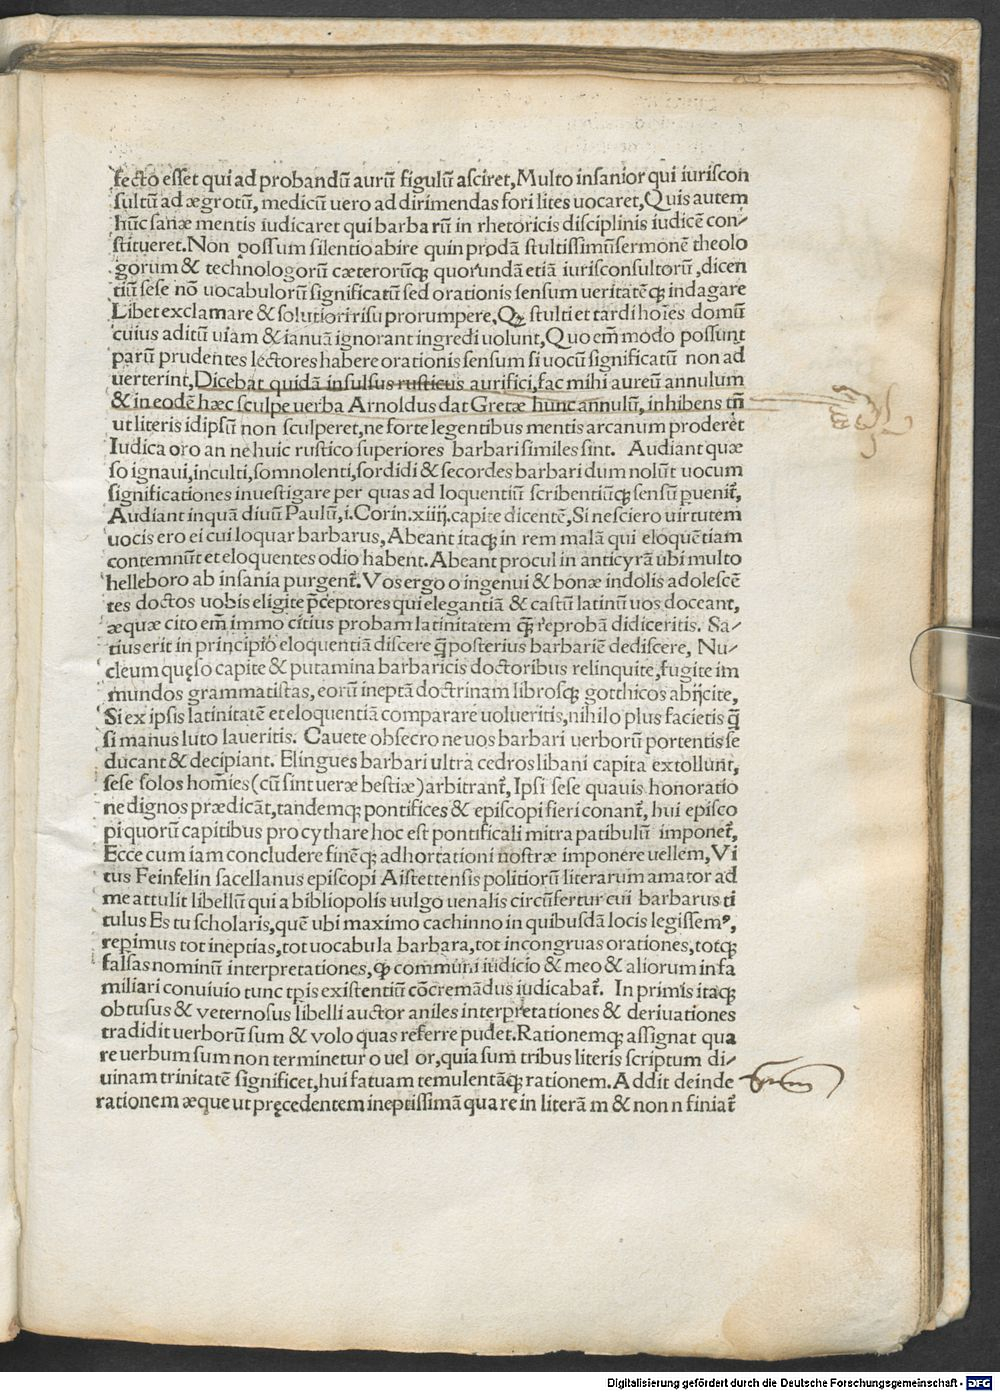 fecto esset qui ad probandū aurū figulū asciret, Multo insanior qui iuriscon
sultū ad ægrotū, medicū uero ad dirimendas fori lites uocaret, Quis autem
hūc sanæ mentis iudicaret qui barbarū in rhetoricis disciplinis iudicē con/
stitueret. Non possum silentio abire quin prodā stultissimū sermonē theolo
gorum & technologorū cæterorūq; quorundā etiā iurisconsultorū, dicen
tiū sese nō uocabulorū significatū sed orationis sensum ueritatēq; indagare
Libet exclamare & solutiori risu prorumpere, Qȝ stulti et tardi hoīes domū
cuius aditū uiam & ianuā ignorant ingredi uolunt, Quo em̄ modo possunt
parū prudentes lectores habere orationis sensum si uocū significatū non ad
uerterint, Dicebat quidā insulsus rusticus aurifici, fac mihi aureū annulum
& in eodē hæc sculpe uerba Arnoldus dat Gretæ hunc annulū, inhibens tn̄
ut literis id ipsū non sculperet, ne forte legentibus mentis arcanum proderet
Iudica oro an ne huic rustico superiores barbari similes sint. Audiant quæ
so ignaui, inculti, somnolenti, sordidi & secordes barbari dum nolūt uocum
significationes inuestigare per quas ad loquentiū scribentiūq; sensū puenit̄,
Audiant inquā diuū Paulū, i. Corin. xiiij. capite dicentē, Si nesciero uirtutem
uocis ero ei cui loquar barbarus, Abeant itaq; in rem malā qui eloquētiam
contemnūt et eloquentes odio habent. Abeant procul in anticyrā ubi multo
helleboro ab insania purgent̄. Vos ergo o ingenui & bonæ indolis adolescē
tes doctos uobis eligite p̄ceptores qui elegantiā & castū latinū uos doceant,
æquæ cito em̄ immo citius probam latinitatem q̄ȝ reprobā didiceritis. Sa/
tius erit in principio eloquentiā discere q̄ȝ posterius barbariē dediscere, Nu/
cleum quęso capite & putamina barbaricis doctoribus relinquite, fugite im
mundos grammatistas, eorū ineptā doctrinam librosq; gotthicos abijcite,
Si ex ipsis latinitatē et eloquentiā comparare uolueritis, nihilo plus facietis q̄ȝ
si manus luto laueritis. Cauete obsecro ne uos barbari uerborū portentis se
ducant & decipiant. Elingues barbari ultra cedros libani capita extollunt,
sese solos homīes (cū sint ueræ bestiæ) arbitrant̄, Ipsi sese quauis honoratio
ne dignos prædicāt, tandemq; pontifices & episcopi fieri conant̄, hui episco
pi quorū capitibus pro cythare hoc est pontificali mitra patibulū imponet̄,
Ecce cum iam concludere finēq; adhortationi nostræ imponere uellem, Vi
tus Feinfelin sacellanus episcopi Aistettensis politiorū literarum amator ad
me attulit libellū qui a bibliopolis uulgo uenalis circūfertur cui barbarus ti
tulus Es tu scholaris, quē ubi maximo cachinno in quibusdā locis legissemꝰ,
repimus tot ineptias, tot uocabula barbara, tot incongruas orationes, totq;
falsas nominū interpretationes, ꝙ communi iudicio & meo & aliorum in fa
miliari conuiuio tunc tp̄is existentiū cōcremādus iudicabat̄. In primis itaq;
obtusus & veternosus libelli auctor aniles interpretationes & deriuationes
tradidit uerborū sum & volo quas referre pudet. Rationemq; assignat qua
re uerbum sum non terminetur o uel or, quia sum tribus literis scriptum di/
uinam trinitatē significet, hui fatuam temulentāq; rationem. Addit deinde
rationem æque ut pręcedentem ineptissimā quare in literā m & non n finiat̄
Digitalisierung gefördert durch die Deutsche Forschungsgemeinschaft - DFG